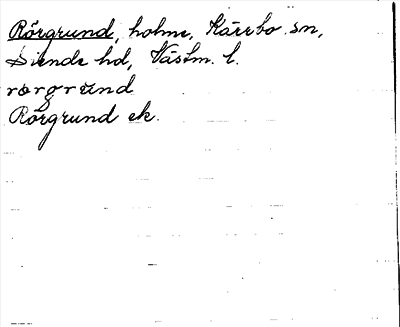 Rörgrund, holme, Kärrbo sn,
Siende hd, Västm. l.
rørgrund
Rörgrund ek.